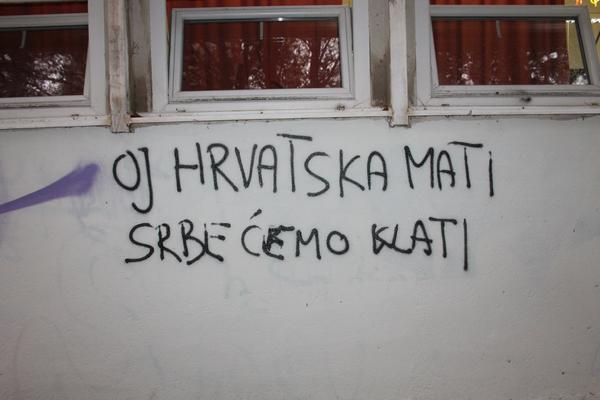 OJ HRVATSKA MATI
SRBE ĆEMO KLATI